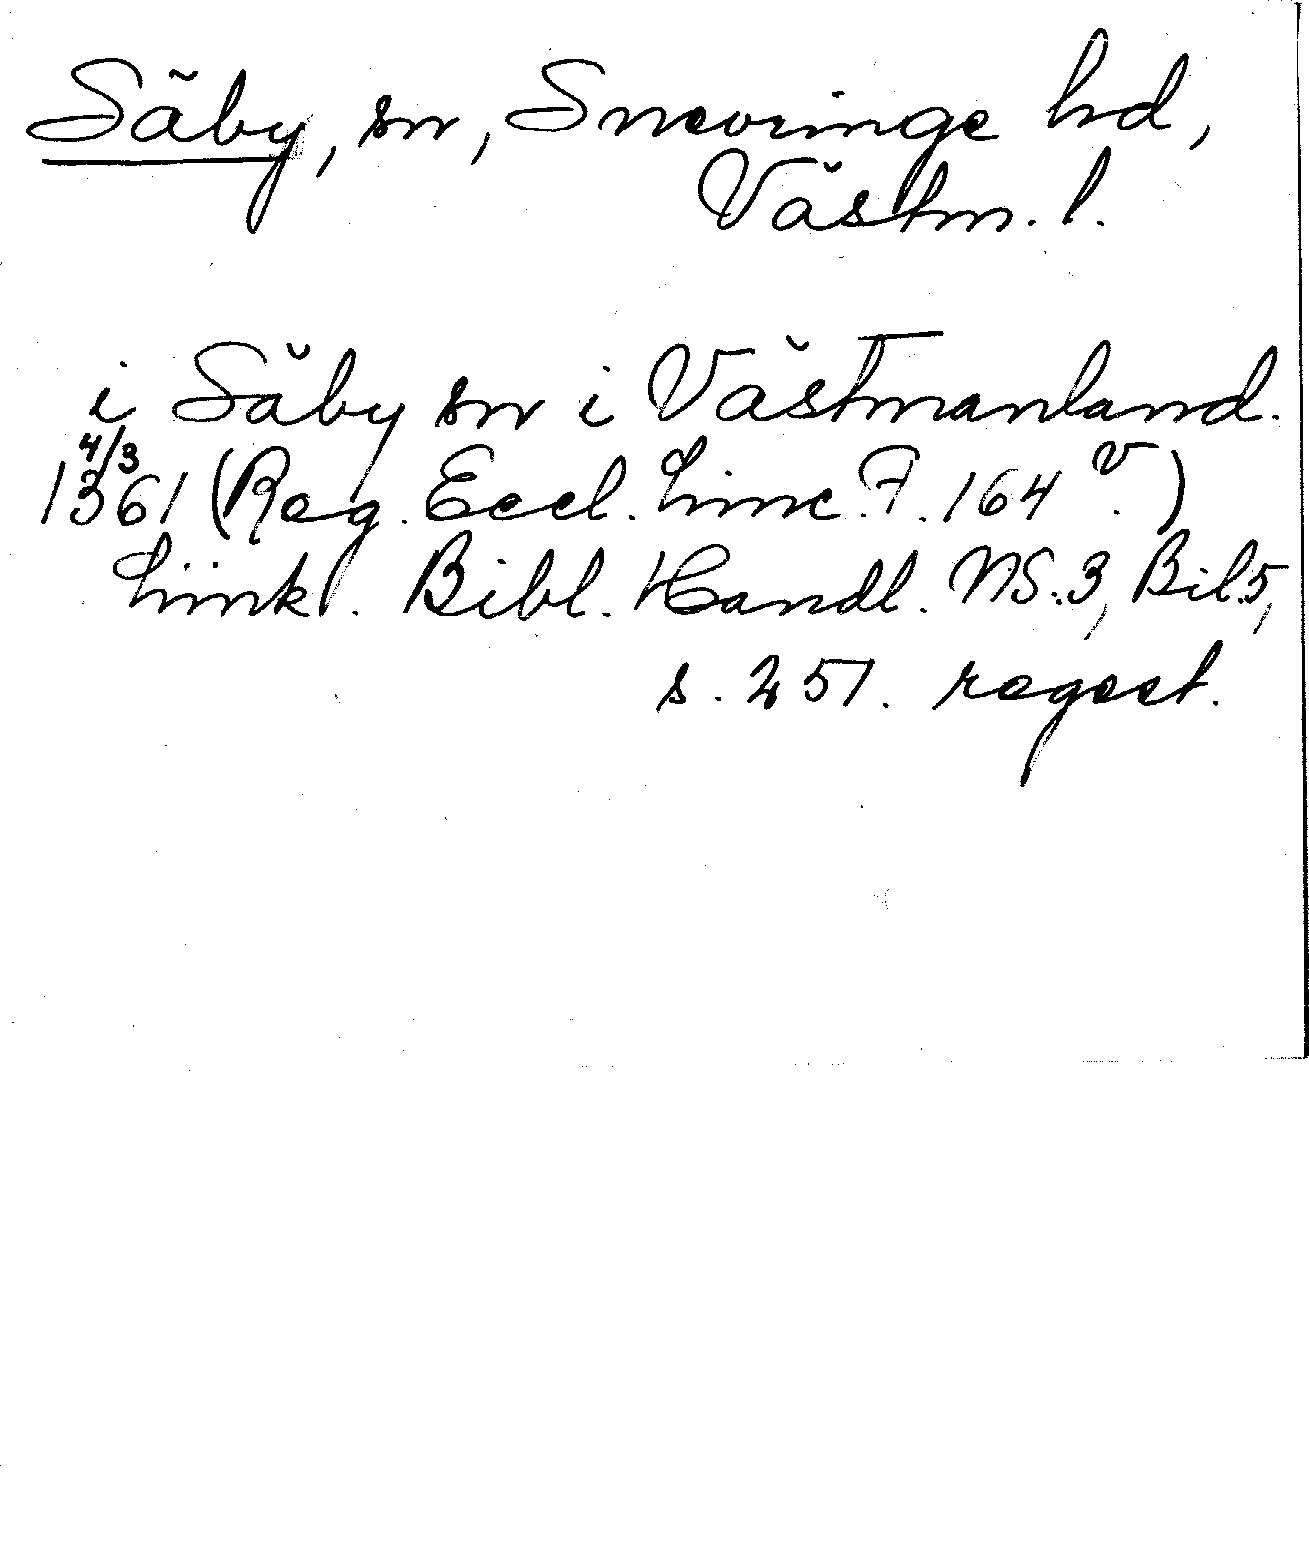 Säby, sn, Snevringe hd,
Västm. l.
i Säby sn i Västmanland.
4/3
1361 (Reg. Eccl. Linc. F. 164 v.)
Link. Bibl. Handl. NS. 3, Bil. 5,
s. 251. regest.